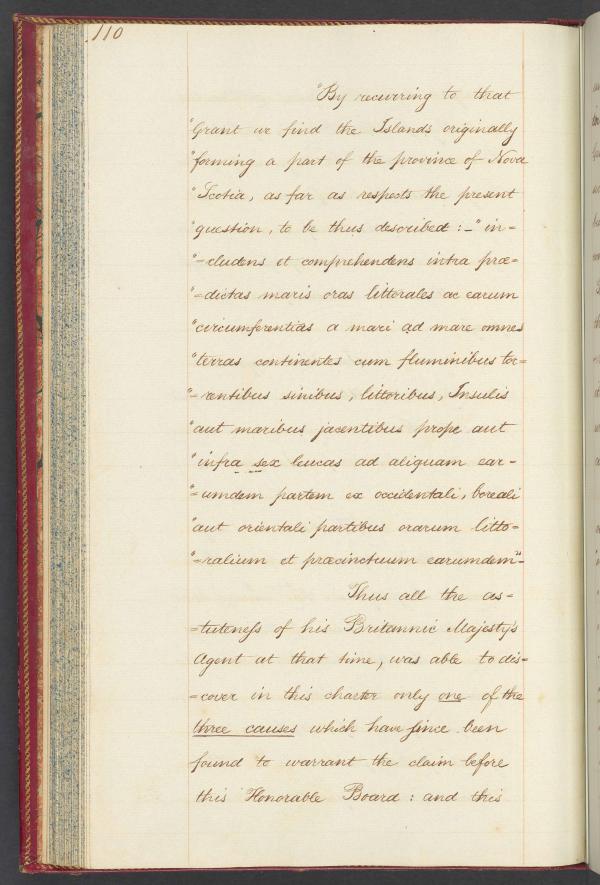 110
"By recurring to that
"Grant we find the Islands originally
"forming a part of the province of Nova
"Scotia, as far as respects the present
"question, to be thus described :_" in=
"=cludens et comprehendens intra præ=
"=dictas maris oras littorales ac earum
"circumferentias a mari ad mare omnes
"terras continentes cum fluminibus tor=
"=rentibus sinibus, littoribus, Insulis
"aut maribus jacentibus prope aut
"infra sex leucas ad aliquam ear-
"=umdem partem ex occidentali, boreali
"aut orientali partibus orarum litto=
"=ralium et præcinctuum earumdem"-
Thus all the as-
=tuteneſs of his Britannic Majesty's
Agent at that time, was able to dis=
=cover in this charter only one of the
three causes which have since been
found to warrant the claim before
this Honorable Board : and this